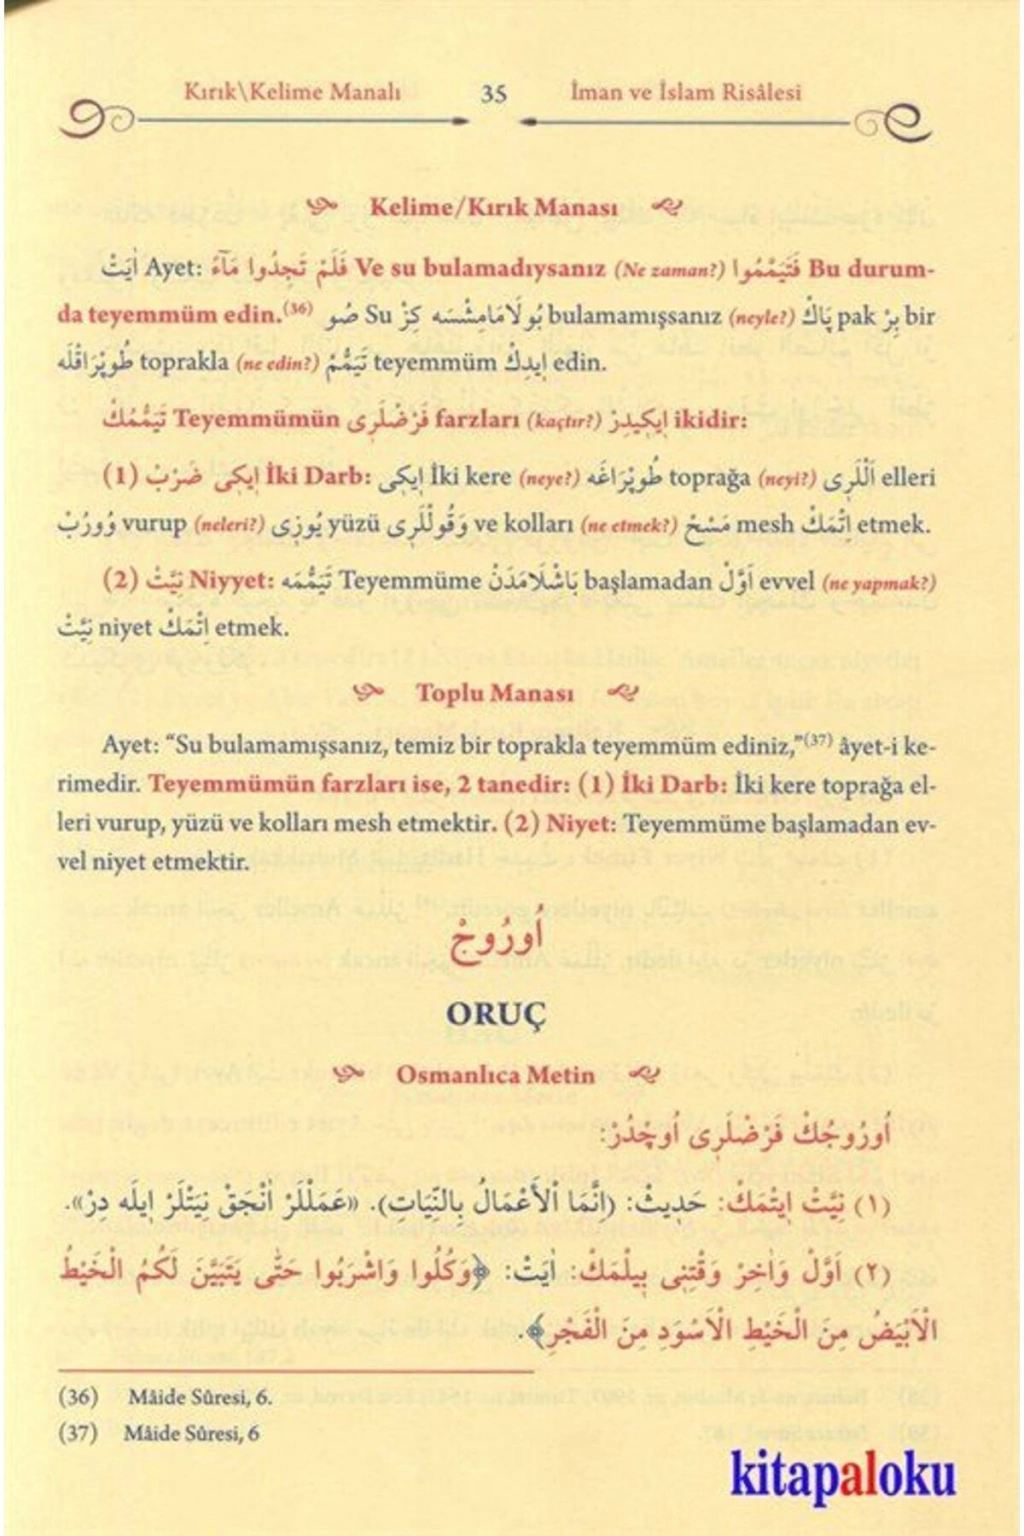 Kırık\Kelime Manalı 35 İman ve İslam Risâlesi
Kelime/Kırık Manası
اٰيَتْ Ayet: فَلَمْ تَجِدُوا مَٓاءً Ve su bulamadıysanız (Ne zaman?) فَتَيَمَّمُوا Bu durum-
da teyemmüm edin.(36) صُو Su بُولَامَامِشْسَه كِزْ bulamamışsanız (neyle?) پَاكْ pak بِرْ bir
طُوپْرَاقْلَه toprakla (ne edin?) تَيَمُّمْ teyemmüm اِيدِكْ edin.
تَيَمُّمُكْ Teyemmümün فَرْضْلَرِى farzları (kaçtır?) اِيكِيدِرْ ikidir:
(1) اِيكِى ضَرْبْ İki Darb: اِيكِى İki kere (neye?) طُوپْرَاغَه toprağa (neyi?) اَلْلَرِى elleri
وُورُبْ vurup (neleri?) يُوزِى yüzü وَقُولْلَرِى ve kolları (ne etmek?) مَسْحْ mesh اِتْمَكْ etmek.
(2) نِيَّتْ Niyyet: تَيَمُّمَه Teyemmüme بَاشْلَامَدَنْ başlamadan اَوَّلْ evvel (ne yapmak?)
نِيَّتْ niyet اِتْمَكْ etmek.
Toplu Manası
Ayet: “Su bulamamışsanız, temiz bir toprakla teyemmüm ediniz,”(37) âyet-i ke-
rimedir. Teyemmümün farzları ise, 2 tanedir: (1) İki Darb: İki kere toprağa el-
leri vurup, yüzü ve kolları mesh etmektir. (2) Niyet: Teyemmüme başlamadan ev-
vel niyet etmektir.
اُورُوجْ
ORUÇ
Osmanlıca Metin
اُورُوجُكْ فَرْضْلَرِى اُوچْدُرْ:
(١) نِيَّتْ اِيتْمَكْ: حَدِيثْ: (اِنَّمَا الْاَعْمَالُ بِالنِّيَاتِ). «عَمَلْلَرْ اَنْجَقْ نِيَتْلَرْ اِيلَه دِرْ».
(٢) اَوَّلْ وَاٰخِرْ وَقْتِنِى بِيلْمَكْ: اٰيَتْ: ﴿وَكُلُوا وَاشْرَبُوا حَتّٰى يَتَبَيَّنَ لَكُمُ الْخَيْطُ
الْاَبْيَضُ مِنَ الْخَيْطِ الْاَسْوَدِ مِنَ الْفَجْرِ﴾.
(36) Mâide Sûresi, 6.
(37) Mâide Sûresi, 6
kitapaloku